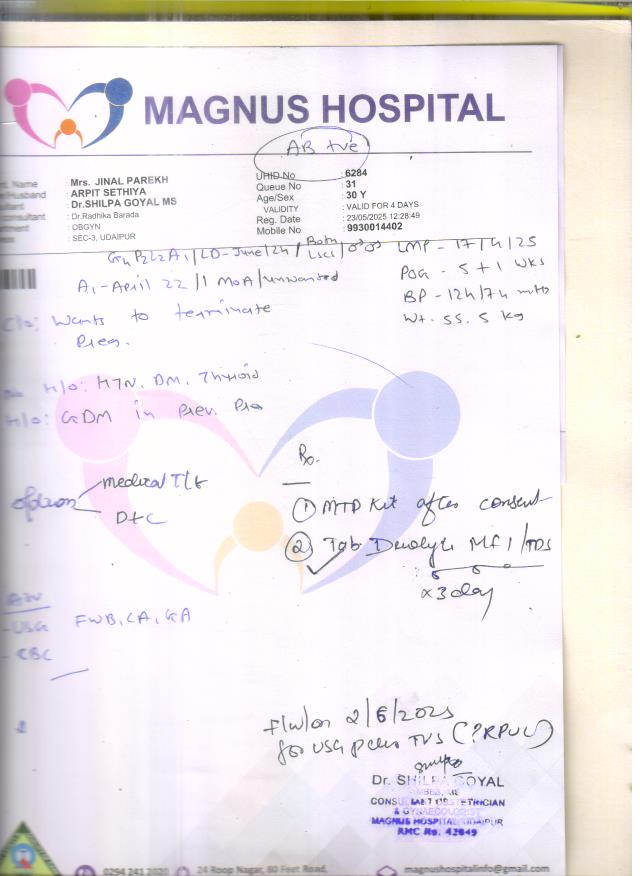 MAGNUS HOSPITAL
AB +ve
Name : Mrs. JINAL PAREKH
/Husband : ARPIT SETHIYA
: Dr.SHILPA GOYAL MS
: Dr.Radhika Barada
: OBGYN
: SEC-3, UDAIPUR
UHID No : 6284
Queue No : 31
Age/Sex : 30 Y
VALIDITY : VALID FOR 4 DAYS
Reg. Date : 23/05/2025 12:28:49
Mobile No : 9930014402
G4 P2L2A1/LD-June/24/Both LSCS/
A1-April 22/1 MOA/unwanted
LMP - 17/4/25
POG - 5+1 wks
BP - 124/74 
Wt. 55.5 kg
C/o: Wants to terminate
Preg.
No H/o: HTN. DM. Thyroid
H/o: GDM in Prev. Preg
option
medical
D+C
Rx.
① MTP Kit after consent
② Tab MF 1/TDS
x 3 day
Adv
- USG FWB, CA, GA
- CBC
F/U on 2/6/2025
for USG pelvis TVS (?RPOC)
Dr. SHILPA GOYAL
MBBS, MS
CONSULTANT OBSTETRICIAN
& GYNAECOLOGIST
MAGNUS HOSPITAL, UDAIPUR
RMC No. 42849
0294 241 2020
24 Roop Nagar, 80 Feet Road,
magnushospitalinfo@gmail.com